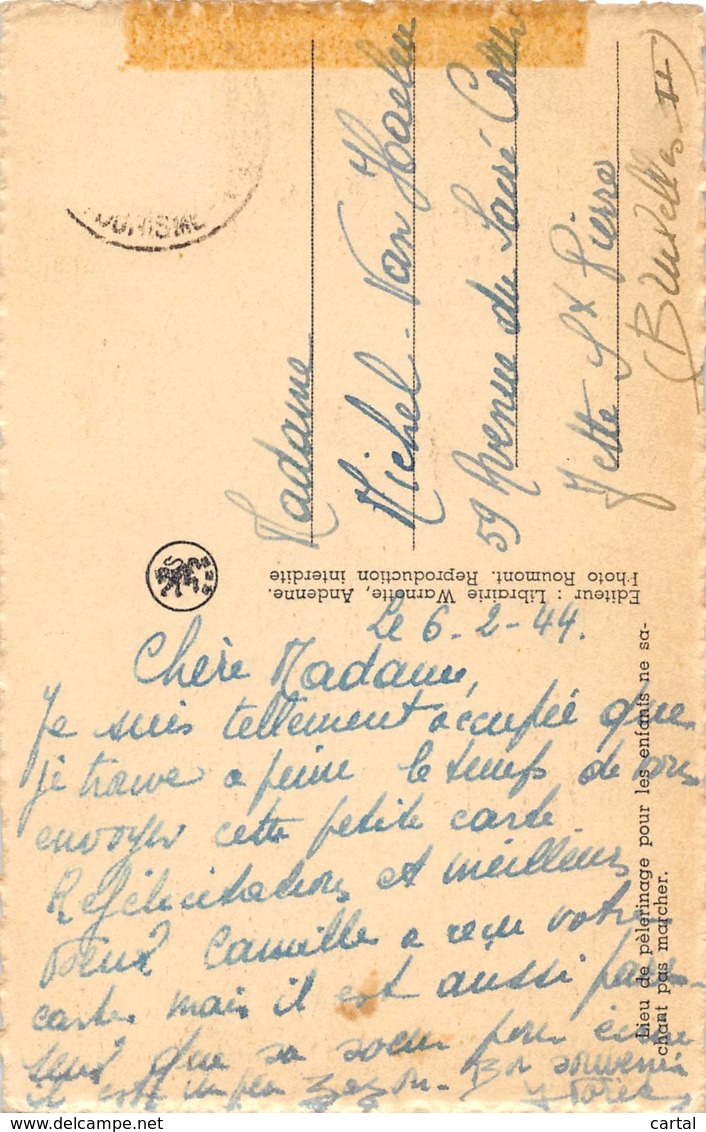 TOURISME
Madame
Michel-Van Haelen
59 Avenue du Sacré Coeur
Jette St Pierre
(Bruxelles II)
Editeur : Librairie Warnotte, Andenne.
Photo Roumont. Reproduction interdite
Le 6-2-44.
Chère Madame,
Je suis tellement occupée que
je trouve a peine le temps de vous
envoyer cette petite carte
Réfélicitations et meilleurs
voeux Camille a reçu votre
carte mais il est aussi pares-
seux que sa soeur pour écrire
il est un peu zazon. Bon souvenir
Lieu de pèlerinage pour les enfants ne sa-
chant pas marcher.
cartal